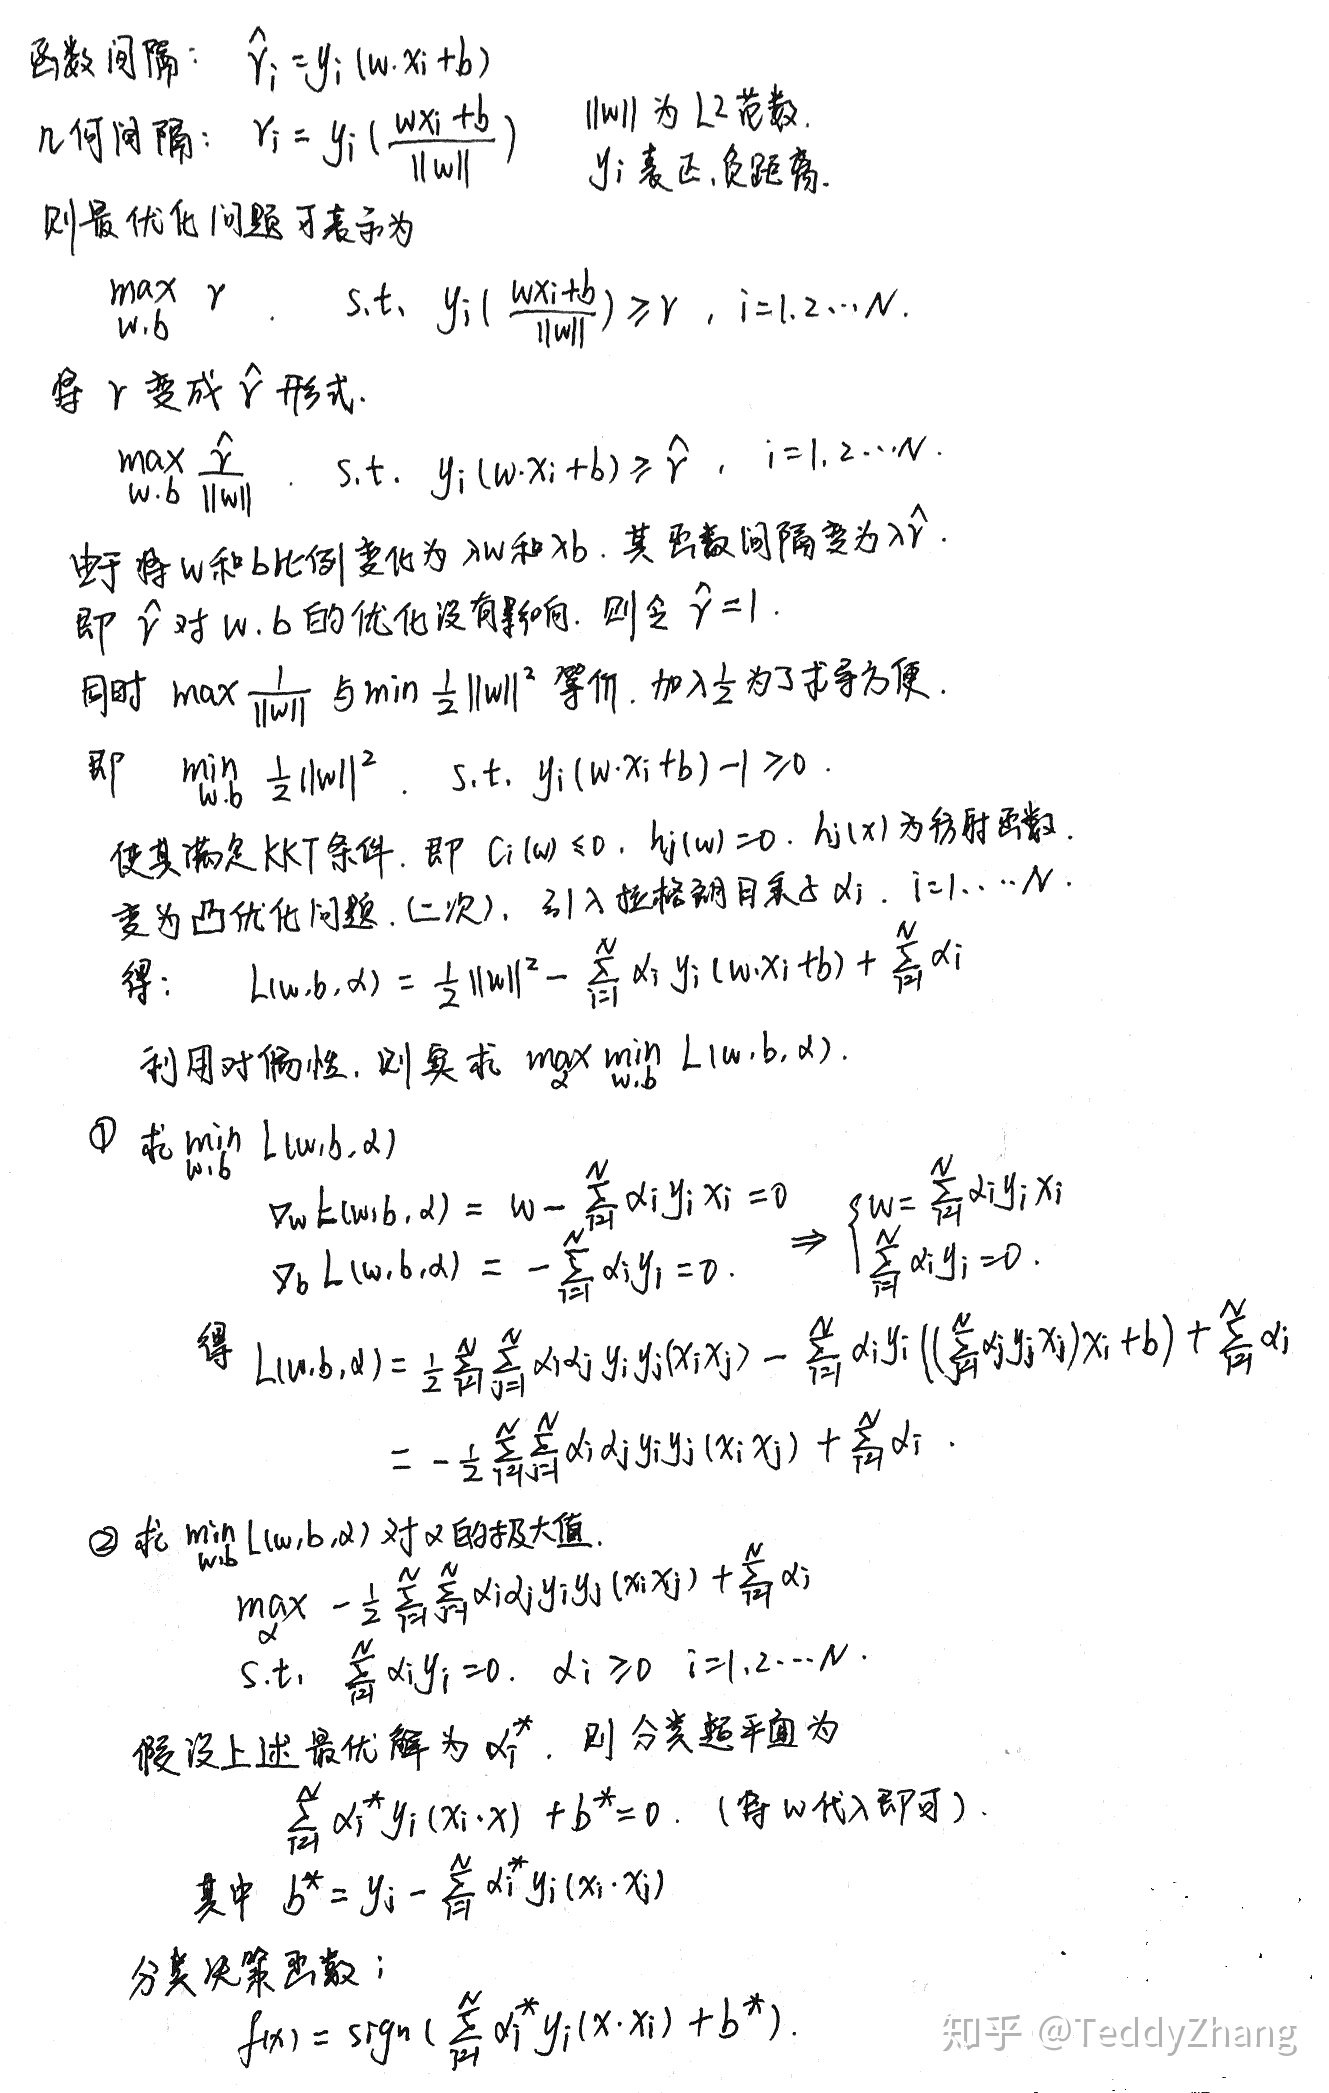 函数间隔: γ̂ᵢ = yᵢ(w·xᵢ+b)
几何间隔: γᵢ = yᵢ(\frac{wxᵢ+b}{||w||}) ||w||为L2范数.
yᵢ表正、负距离.
则最优化问题可表示为
max_{w.b} γ . s.t. yᵢ(\frac{wxᵢ+b}{||w||}) ≥ γ , i=1.2…N.
将 γ 变成 γ̂ 形式.
max_{w.b} \frac{γ̂}{||w||} . s.t. yᵢ(w·xᵢ+b) ≥ γ̂ , i=1.2…N.
由于将w和b比例变化为λw和λb. 其函数间隔变为λγ̂.
即 γ̂ 对 w.b 的优化没有影响. 则令 γ̂=1.
同时 max \frac{1}{||w||} 与 min \frac{1}{2}||w||² 等价. 加入\frac{1}{2}为了求导方便.
即 min_{w.b} \frac{1}{2}||w||² . s.t. yᵢ(w·xᵢ+b)-1≥0.
使其满足KKT条件. 即 Cᵢ(w)≤0. hⱼ(w)=0. hⱼ(x)为仿射函数.
变为凸优化问题.(二次), 引入拉格朗日乘子 αᵢ. i=1.…N.
得: L(w,b,α) = \frac{1}{2}||w||² - \sum_{i=1}^{N} αᵢyᵢ(w·xᵢ+b) + \sum_{i=1}^{N} αᵢ
利用对偶性, 则要求 max_{α} min_{w.b} L(w,b,α).
① 求 min_{w,b} L(w,b,α)
∇_w L(w,b,α) = w - \sum_{i=1}^{N} αᵢyᵢxᵢ = 0 ⇒ { w = \sum_{i=1}^{N} αᵢyᵢxᵢ
∇_b L(w,b,α) = -\sum_{i=1}^{N} αᵢyᵢ = 0. \sum_{i=1}^{N} αᵢyᵢ = 0.
得 L(w,b,α) = \frac{1}{2}\sum_{i=1}^{N}\sum_{j=1}^{N} αᵢαⱼyᵢyⱼ(xᵢxⱼ) - \sum_{i=1}^{N} αᵢyᵢ((\sum_{j=1}^{N} αⱼyⱼxⱼ)xᵢ+b) + \sum_{i=1}^{N} αᵢ
= -\frac{1}{2}\sum_{i=1}^{N}\sum_{j=1}^{N} αᵢαⱼyᵢyⱼ(xᵢxⱼ) + \sum_{i=1}^{N} αᵢ .
② 求 min_{w,b} L(w,b,α) 对α的极大值.
max_{α} -\frac{1}{2}\sum_{i=1}^{N}\sum_{j=1}^{N} αᵢαⱼyᵢyⱼ(xᵢxⱼ) + \sum_{i=1}^{N} αᵢ
s.t. \sum_{i=1}^{N} αᵢyᵢ=0. αᵢ≥0 i=1,2…N.
假设上述最优解为 αᵢ*. 则分类超平面为
\sum_{i=1}^{N} αᵢ*yᵢ(xᵢ·x) + b*=0. (将w代入即可).
其中 b* = yⱼ - \sum_{i=1}^{N} αᵢ*yᵢ(xᵢ·xⱼ)
分类决策函数;
f(x) = sign(\sum_{i=1}^{N} αᵢ*yᵢ(x·xᵢ) + b*).
知乎 @TeddyZhang